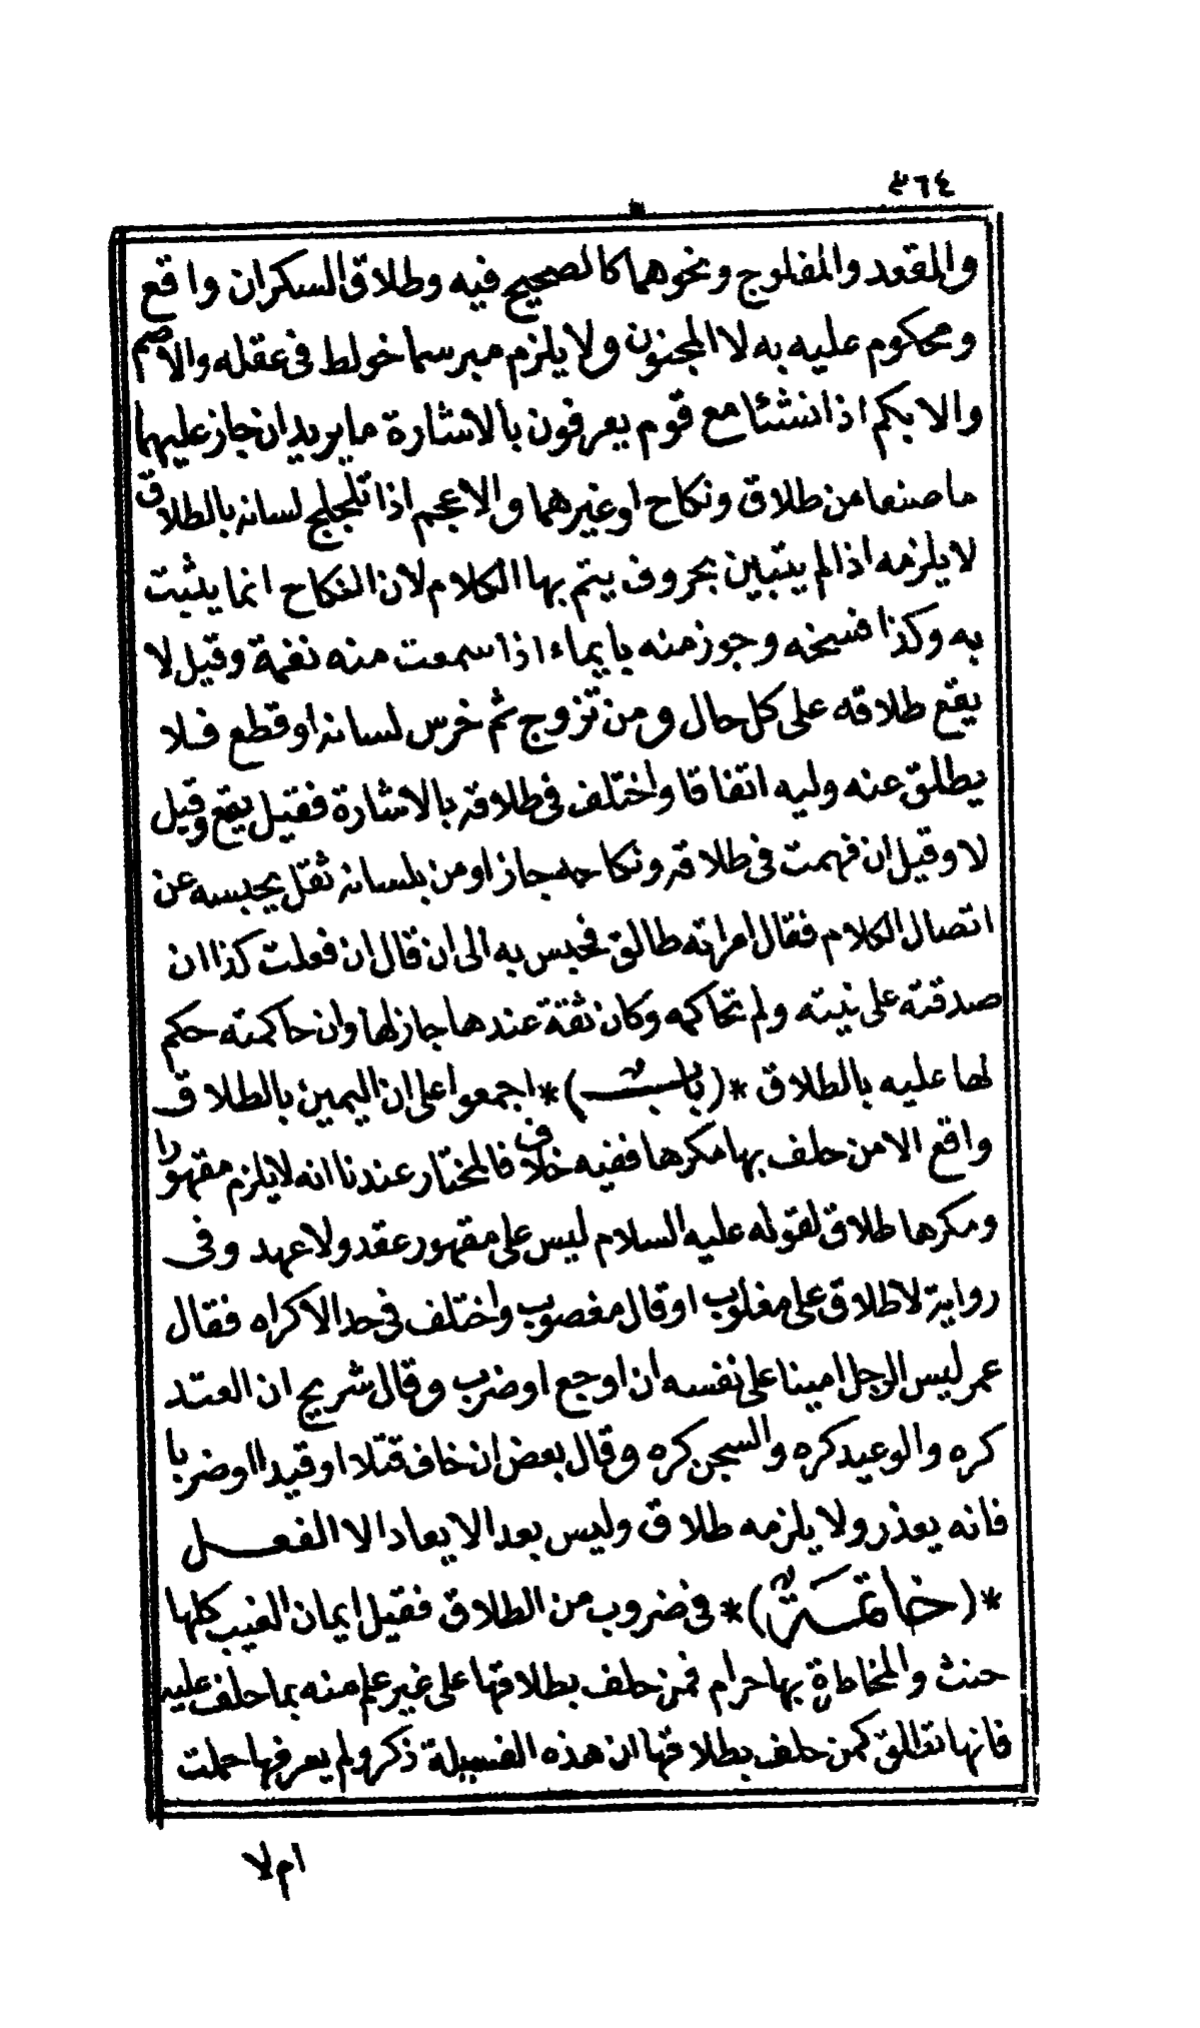 ٣٦٤
والمقعد والمفلوج ونحوهما كالصحيح فيه وطلاق السكران واقع
ومحكوم عليه به لا المجنون ولا يلزم مبرسما خولط فى عقله والاصم
والابكم اذا نشئا مع قوم يعرفون بالاشارة ما يريدان جاز عليهما
ما صنعا من طلاق ونكاح او غيرهما والاعجم اذا تلجلج لسانه بالطلاق
لا يلزمه اذا لم يتبين بحروف يتم بها الكلام لان النكاح انما يثبت
به وكذا فسخه وجوز منه بايماء اذا سمعت منه نغمة وقيل لا
يقع طلاقه على كل حال ومن تزوج ثم خرس لسانه او قطع فلا
يطلق عنه وليه اتفاقا واختلف فى طلاقه بالاشارة فقيل يقع وقيل
لا وقيل ان فهمت فى طلاقه ونكاحه جاز او من بلسانه ثقل يحبسه عن
اتصال الكلام فقال امراته طالق فحبس به الى ان قال ان فعلت كذا ان
صدقته على نيته ولم تحاكمه وكان ثقة عندها جاز لها وان حاكمته حكم
لها عليه بالطلاق *(باب)* اجمعوا على ان اليمين بالطلاق
واقع الا من حلف بها مكرها ففيه خلاف فالمختار عندنا انه لا يلزم مقهورا
ومكرها طلاق لقوله عليه السلام ليس على مقهور عقد ولا عهد وفى
رواية لا طلاق على مغلوب او قال مغصوب واختلف فى حد الاكراه فقال
عمر ليس الرجل امينا على نفسه ان اوجع او ضرب وقال شريح ان العتد
كره والوعيد كره والسجن كره وقال بعض ان خاف قتلا او قيدا او ضربا
فانه يعذر ولا يلزمه طلاق وليس بعد الايعاد الا الفعل
*(خاتمة)* فى ضروب من الطلاق فقيل ايمان الغيب كلها
حنث والمخاطرة بها حرام فمن حلف بطلاقها على غير علم منه بما حلف عليه
فانها تطلق كمن حلف بطلاقها ان هذه الفسيلة ذكر ولم يعرفها حملت
ام لا